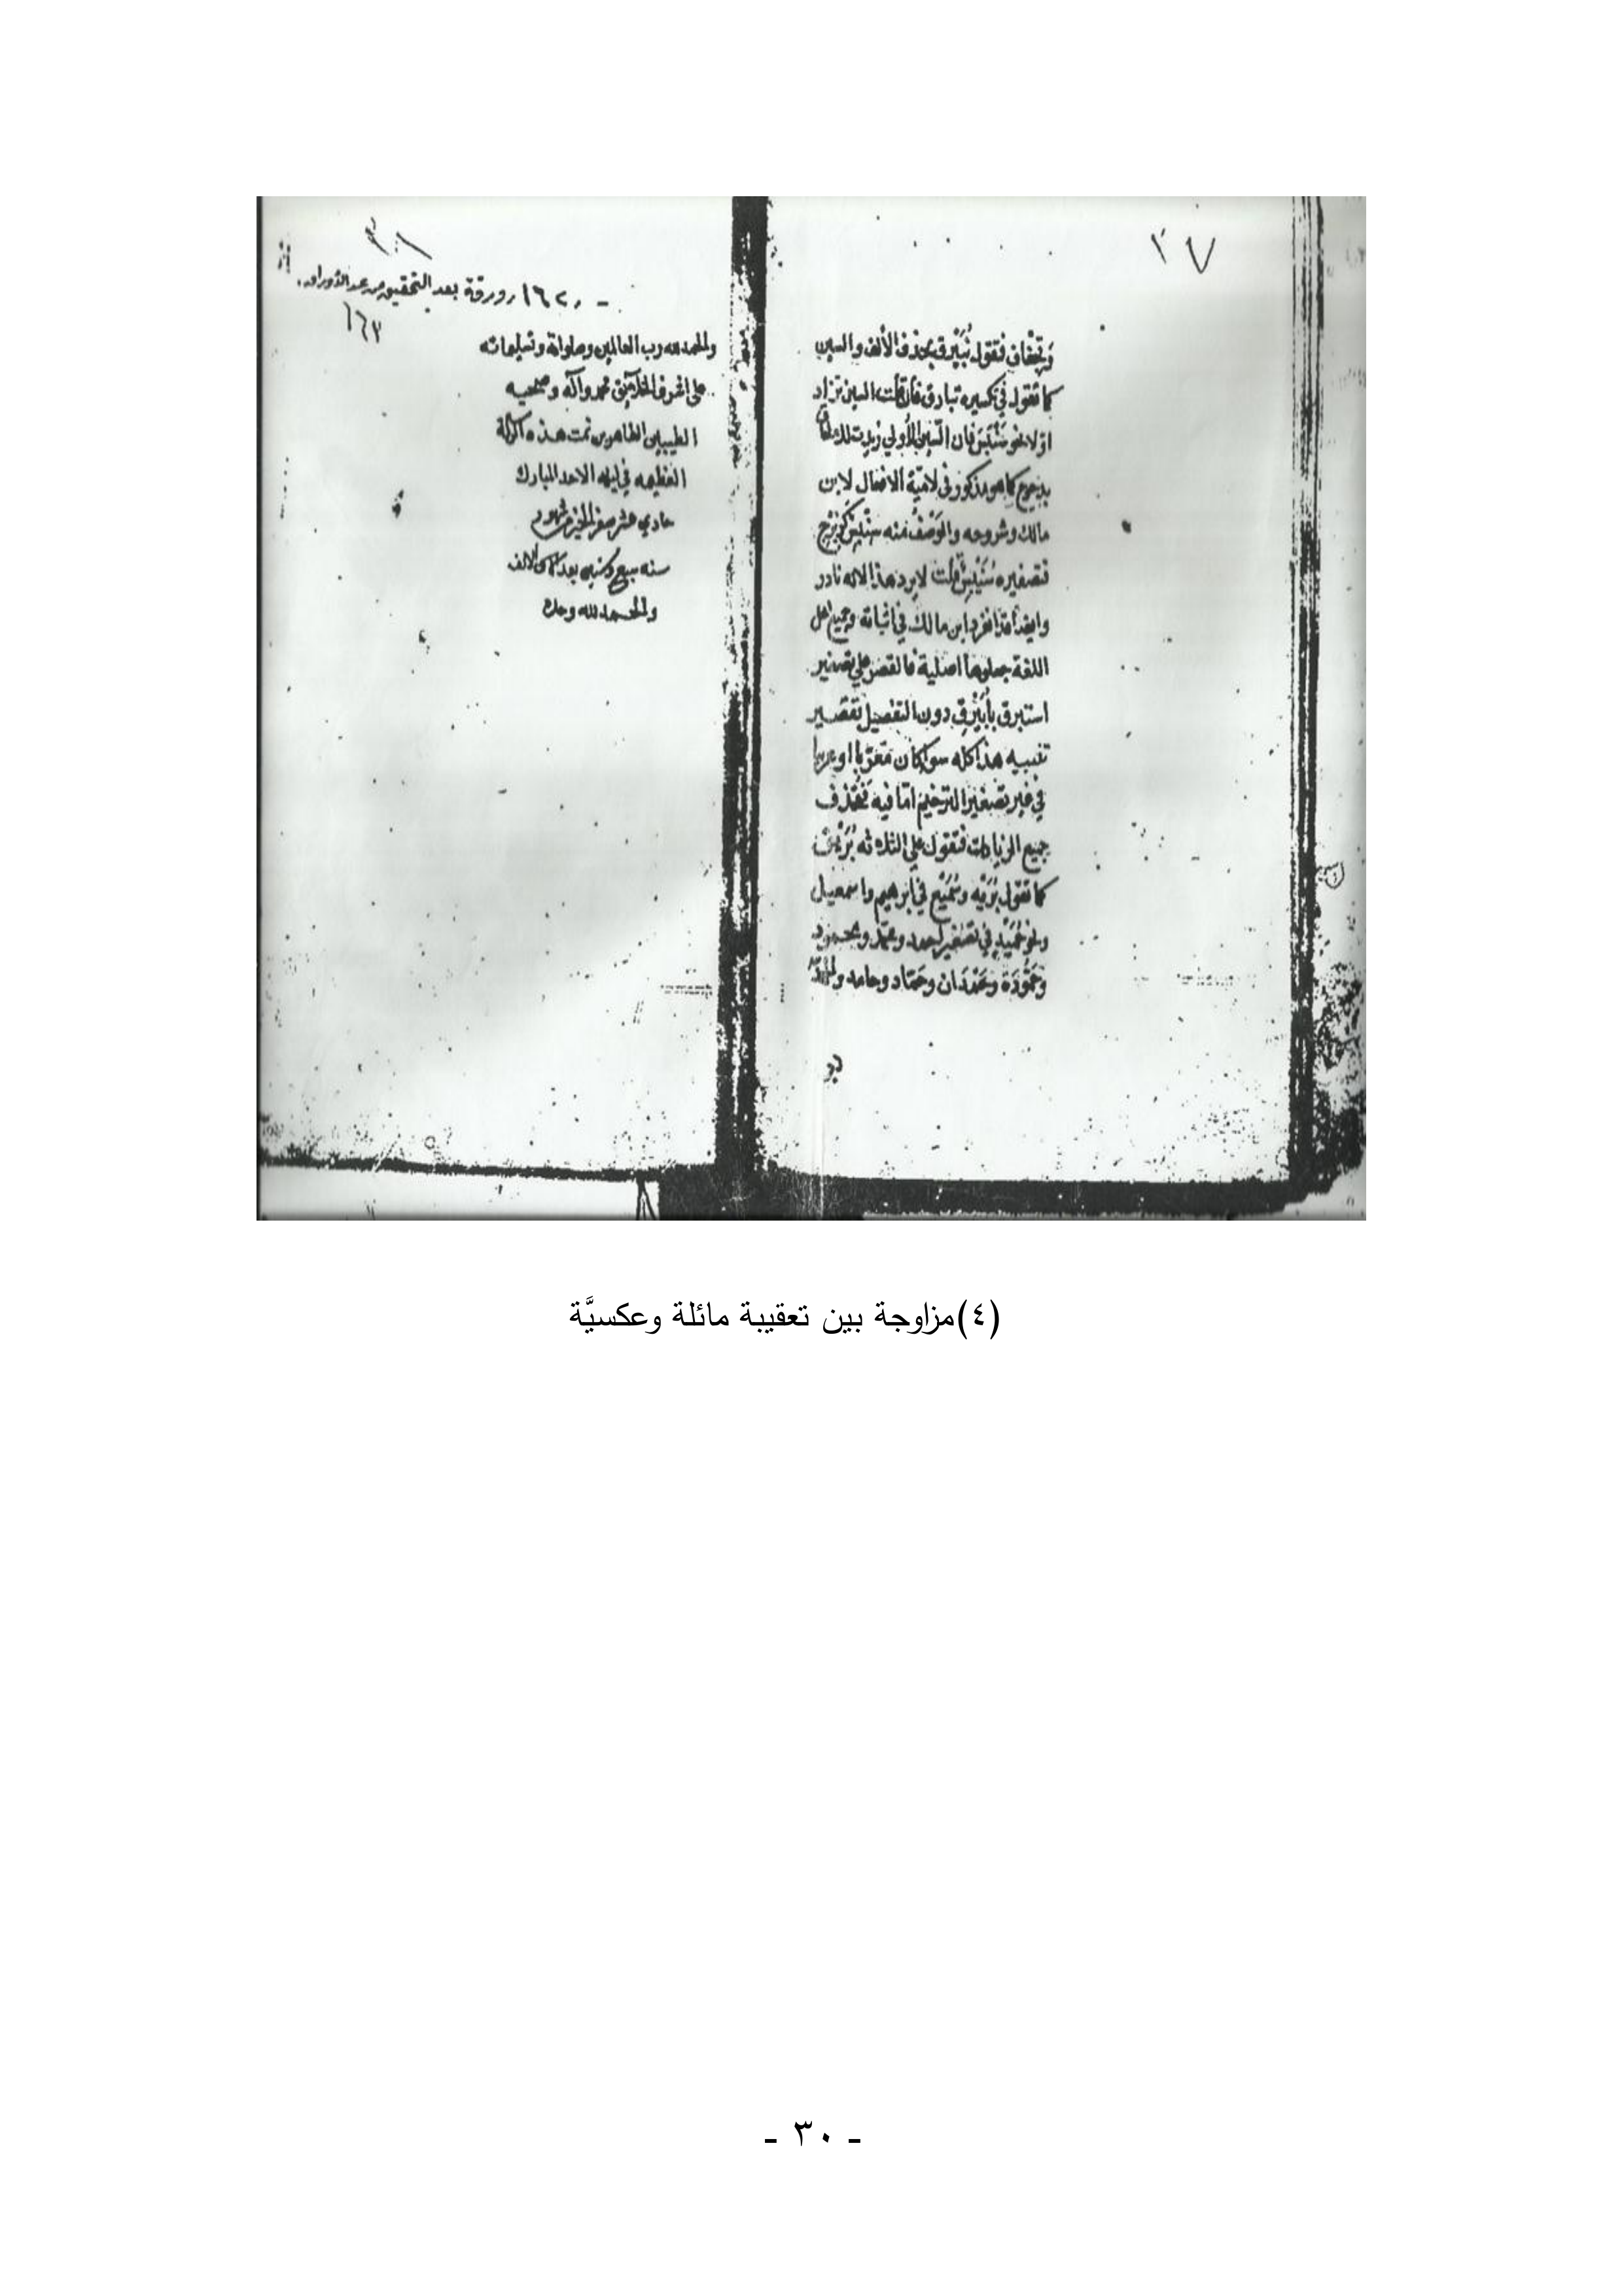 ٢٧
وتخفاف فتقول تبيرق بحذف الألف والسين
كما تقول في تكسيره تبارق فان قلت السين تزاد
اولا نحو سنبس فان السين الأولى زيدت للالحاق
بدحرج كما هو مذكور في لامية الافعال لابن
مالك وشروحه والوصف منه سنبس كزبرج
فتصغيره سنيبس قلت لا يرد هذا لانه نادر
وايضا قد انفرد ابن مالك في اثباته وجميع اهل
اللغة جعلوها اصلية فالقصر على تصغير
استبرق بأبيرق دون التفصيل تقصير
تنبيه هذا كله سوا كان معربا او عربيا
في غير تصغير الترخيم اما فيه فتحذف
جميع الزيادات فتقول على الثلاثه بريق
كما تقول بريه وسميع في ابرهيم واسمعيل
ونحو حميد في تصغير احمد ومحمد ومحمود
وحمودة وحمدان وحماد وحامد والحمد لله
رب
١٦٢ ورقة بعد التحقيق من عدد الأوراق.
١٦٣
والحمد لله رب العالمين وصلواته وتسليماته
على اشرف الخلق محمد وآله وصحبه
الطيبين الطاهرين تمت هذه الرسالة
العظيمه في ليلة الاحد المبارك
حادي عشر صفر الخير من شهور
سنه سبع بعد الالف
والحمد لله وحده
(٤)مزاوجة بين تعقيبة مائلة وعكسيَّة
- ٣٠ -